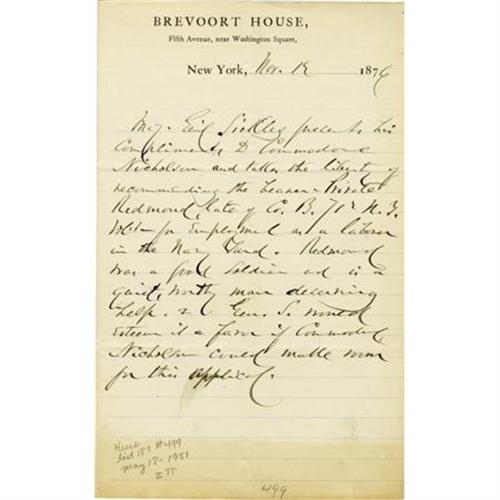 BREVOORT HOUSE,
Fifth Avenue, near Washington Square,
New York, Nov. 18 1876
Maj. Genl Sickles presents his
Compliments to Commodore
Nicholson and takes the liberty of
recommending the bearer Private
Redmond, late of Co. B. 71st N.Y.
Vols for Employment as a laborer
in the Navy Yard. Redmond
was a good Soldier and is a
quiet, worthy man deserving
help. & Gen. S. would
Esteem it a favor if Commodore
Nicholson could make room
for this applicant.
list 187 #499
May 17-1951
499